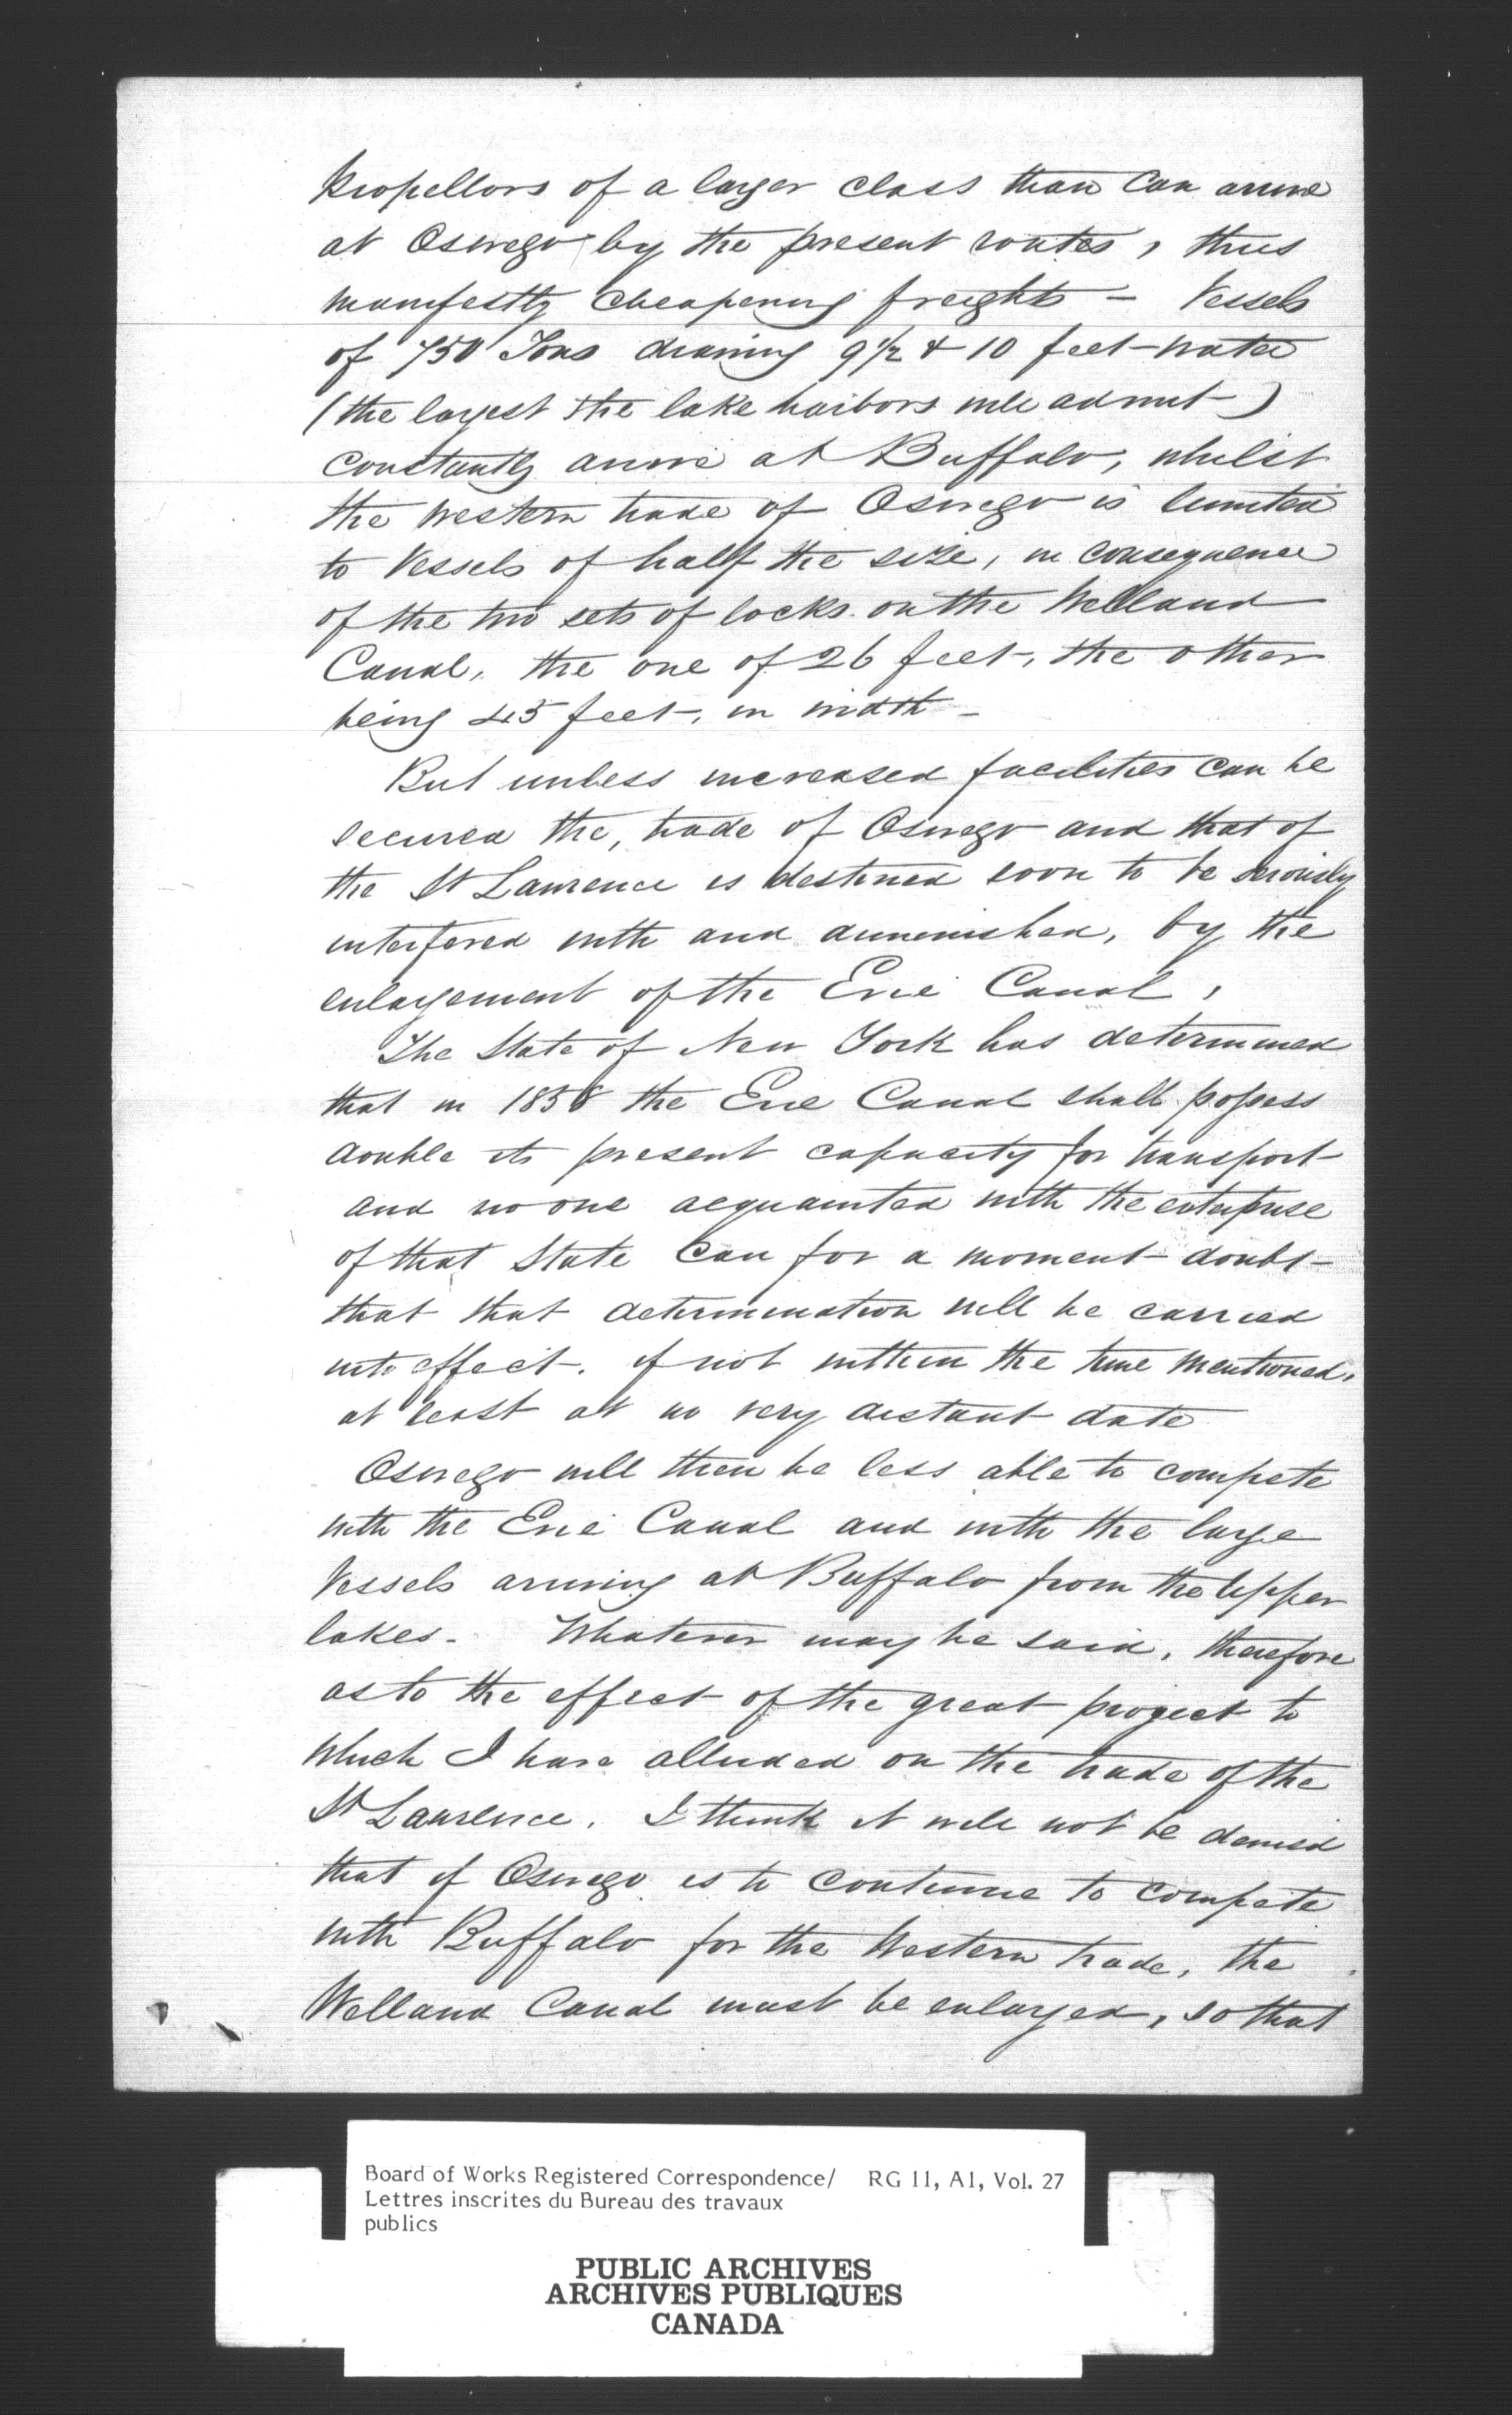 Propellors of a larger class than can arrive
at Oswego by the present routes, thus
manifestly cheapening freights – Vessels
of 750 Tons drawing 9½ & 10 feet water
(the largest the lake harbors will admit)
constantly arrive at Buffalo, whilst
the western trade of Oswego is limited
to Vessels of half the size, in consequence
of the two sets of locks on the Welland
Canal, the one of 26 feet, the other
being 45 feet, in width –
But unless increased facilities can be
secured the, trade of Oswego and that of
the St Lawrence is destined soon to be seriously
interfered with and diminished, by the
enlargement of the Erie Canal,
The State of New York has determined
that in 1858 the Erie Canal shall possess
double its present capacity for transport
and no one acquainted with the enterprise
of that State can for a moment doubt
that that determination will be carried
into effect. if not within the time mentioned,
at least at no very distant date
Oswego will then be less able to compete
with the Erie Canal and with the large
Vessels arriving at Buffalo from the Upper
lakes. Whatever may be said, therefore
as to the effect of the great project to
which I have alluded on the trade of the
St Lawrence. I think it will not be denied
that if Oswego is to continue to compete
with Buffalo for the Western trade, the
Welland Canal must be enlarged, so that
Board of Works Registered Correspondence/ RG 11, A1, Vol. 27
Lettres inscrites du Bureau des travaux
publics
PUBLIC ARCHIVES
ARCHIVES PUBLIQUES
CANADA